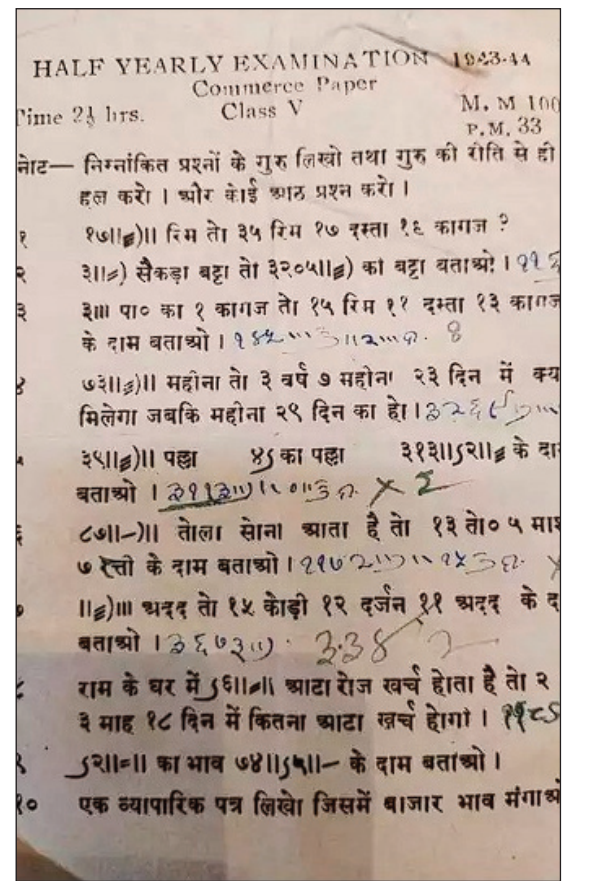 HALF YEARLY EXAMINATION 1943-44
Commerce Paper
Time 2½ hrs. Class V M. M 100
P.M. 33
नोट— निम्नांकित प्रश्नों के गुरु लिखो तथा गुरु की रीति से ही
हल करो । और कोई आठ प्रश्न करो ।
१ १७॥≡)॥ रिम तो ३५ रिम १७ दस्ता १६ कागज ?
२ ३॥=) सैकड़ा बट्टा तो ३२०५॥≡) का बट्टा बताओ ।
३ ३॥। पा० का १ कागज तो १५ रिम ११ दस्ता १३ कागज
के दाम बताओ ।
४ ७३॥≡)॥ महीना तो ३ वर्ष ७ महीना २३ दिन में क्य
मिलेगा जबकि महीना २९ दिन का हो ।
३९॥≡)॥ पल्ला ४ऽ का पल्ला ३१३॥ऽ२॥≡ के दा
बताओ ।
८७॥-)॥ तोला सोना आता है तो १३ तो० ५ माश
७ रत्ती के दाम बताओ ।
॥≡)॥। अदद तो १५ कोड़ी १२ दर्जन ११ अदद के द
बताओ ।
८ राम के घर में ऽ६॥=॥ आटा रोज खर्च होता है तो २
३ माह १८ दिन में कितना आटा खर्च होगा ।
९ ऽ२॥=॥ का भाव ७४॥ऽ५॥- के दाम बताओ ।
१० एक व्यापारिक पत्र लिखो जिसमें बाजार भाव मंगाओ